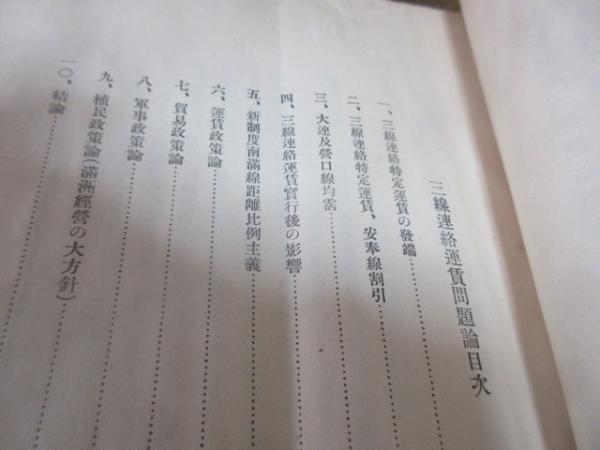 三線連絡運賃問題論目次
一、三線連絡特定運賃の發端
二、三線連絡特定運賃、安奉線割引
三、大連及營口線均霑
四、三線連絡運賃實行後の影響
五、新制度南滿線距離比例主義
六、運賃政策論
七、貿易政策論
八、軍事政策論
九、植民政策論(滿洲經營の大方針)
一〇、結論